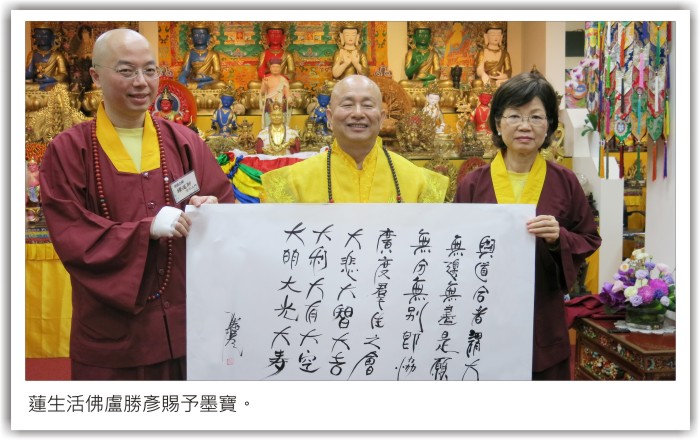 與道合者謂大
無邊無盡是願
無分無別即協
廣度羣生之會
大悲大智大吉
大利大有大空
大明大光大壽
蓮生活佛盧勝彥賜予墨寶。